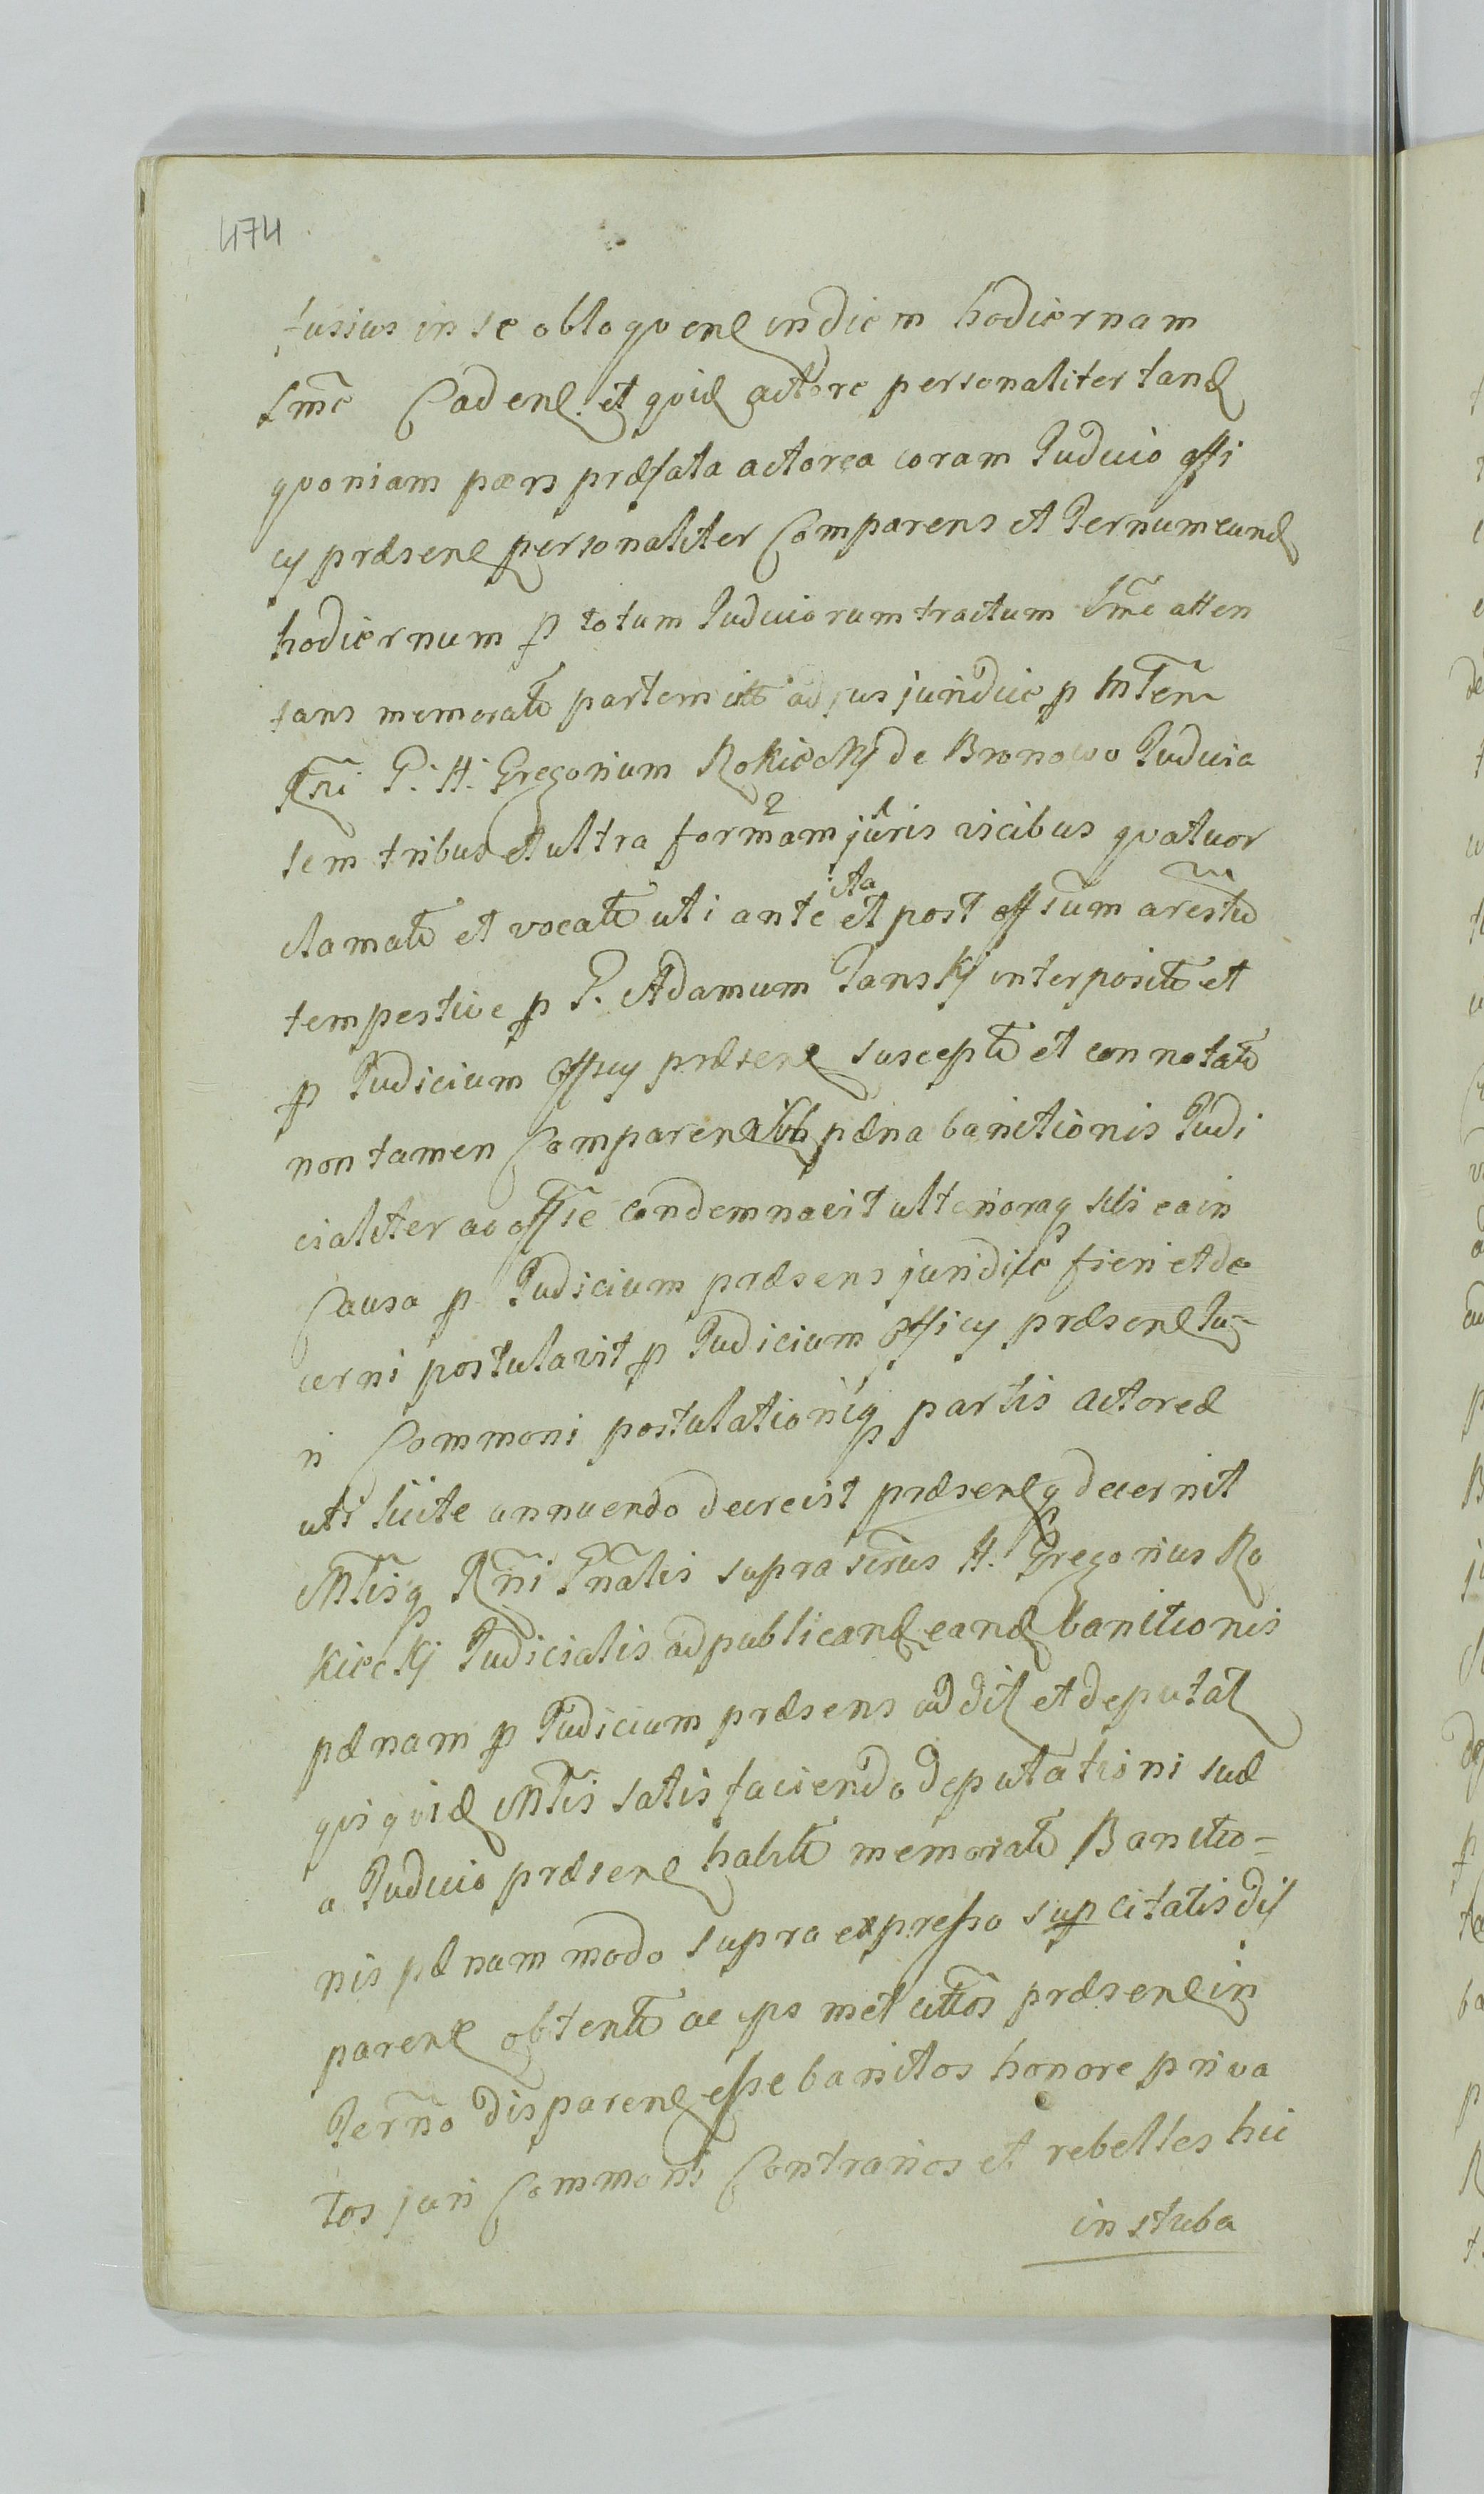 474
fusius in se obloquen in diem hodiernam
Lme Caden et quid actore personaliter tand
quoniam pars præfata actorea coram Judicio offi
cij præsen personaliter Comparens et Ternum eund
hodiernum p totum Judiciorum tractum Lme atten
tans memorat partem citt ad jus juridice p Minlem
Rni P. H. Gregorium Rokicckÿ de Bronowo Judicia
lem tribus et ultra formam juris vicibus quatuor
clamat et vocat uti ante ita et post essum arestu
tempestive p P. Adamum Janskÿ interposit et
p Judicium Officij præsen suscept et connotat
non tamen Comparen sub pæna banitionis Judi
cialiter ac offse condemnavit ulterioraq sibi ea in
Causa p Judicium præsens juridice fieri et de
cerni postulavit p Judicium Officij præsen Ju-
ri Commoni postulationiq partis actoreæ
uti licite annuendo decrevit præsenq decernit
Mnlisq Rni Gnalis supra scrus H. Gregorius Ro
kicckÿ Judicialis ad publicand eand banitionis
pænam p Judicium præsens addit et deputat
qui quid Mnlis satisfaciendo deputationi suæ
a Judicio præsen habit memorat Banitio-
nis pænam modo supra expresso sup citatis dis
paren obtent ac ips met cittos præsen in
Termo disparen esse banitos honore priva
tos juri Commoni Contrarios et rebelles hic
in stuba